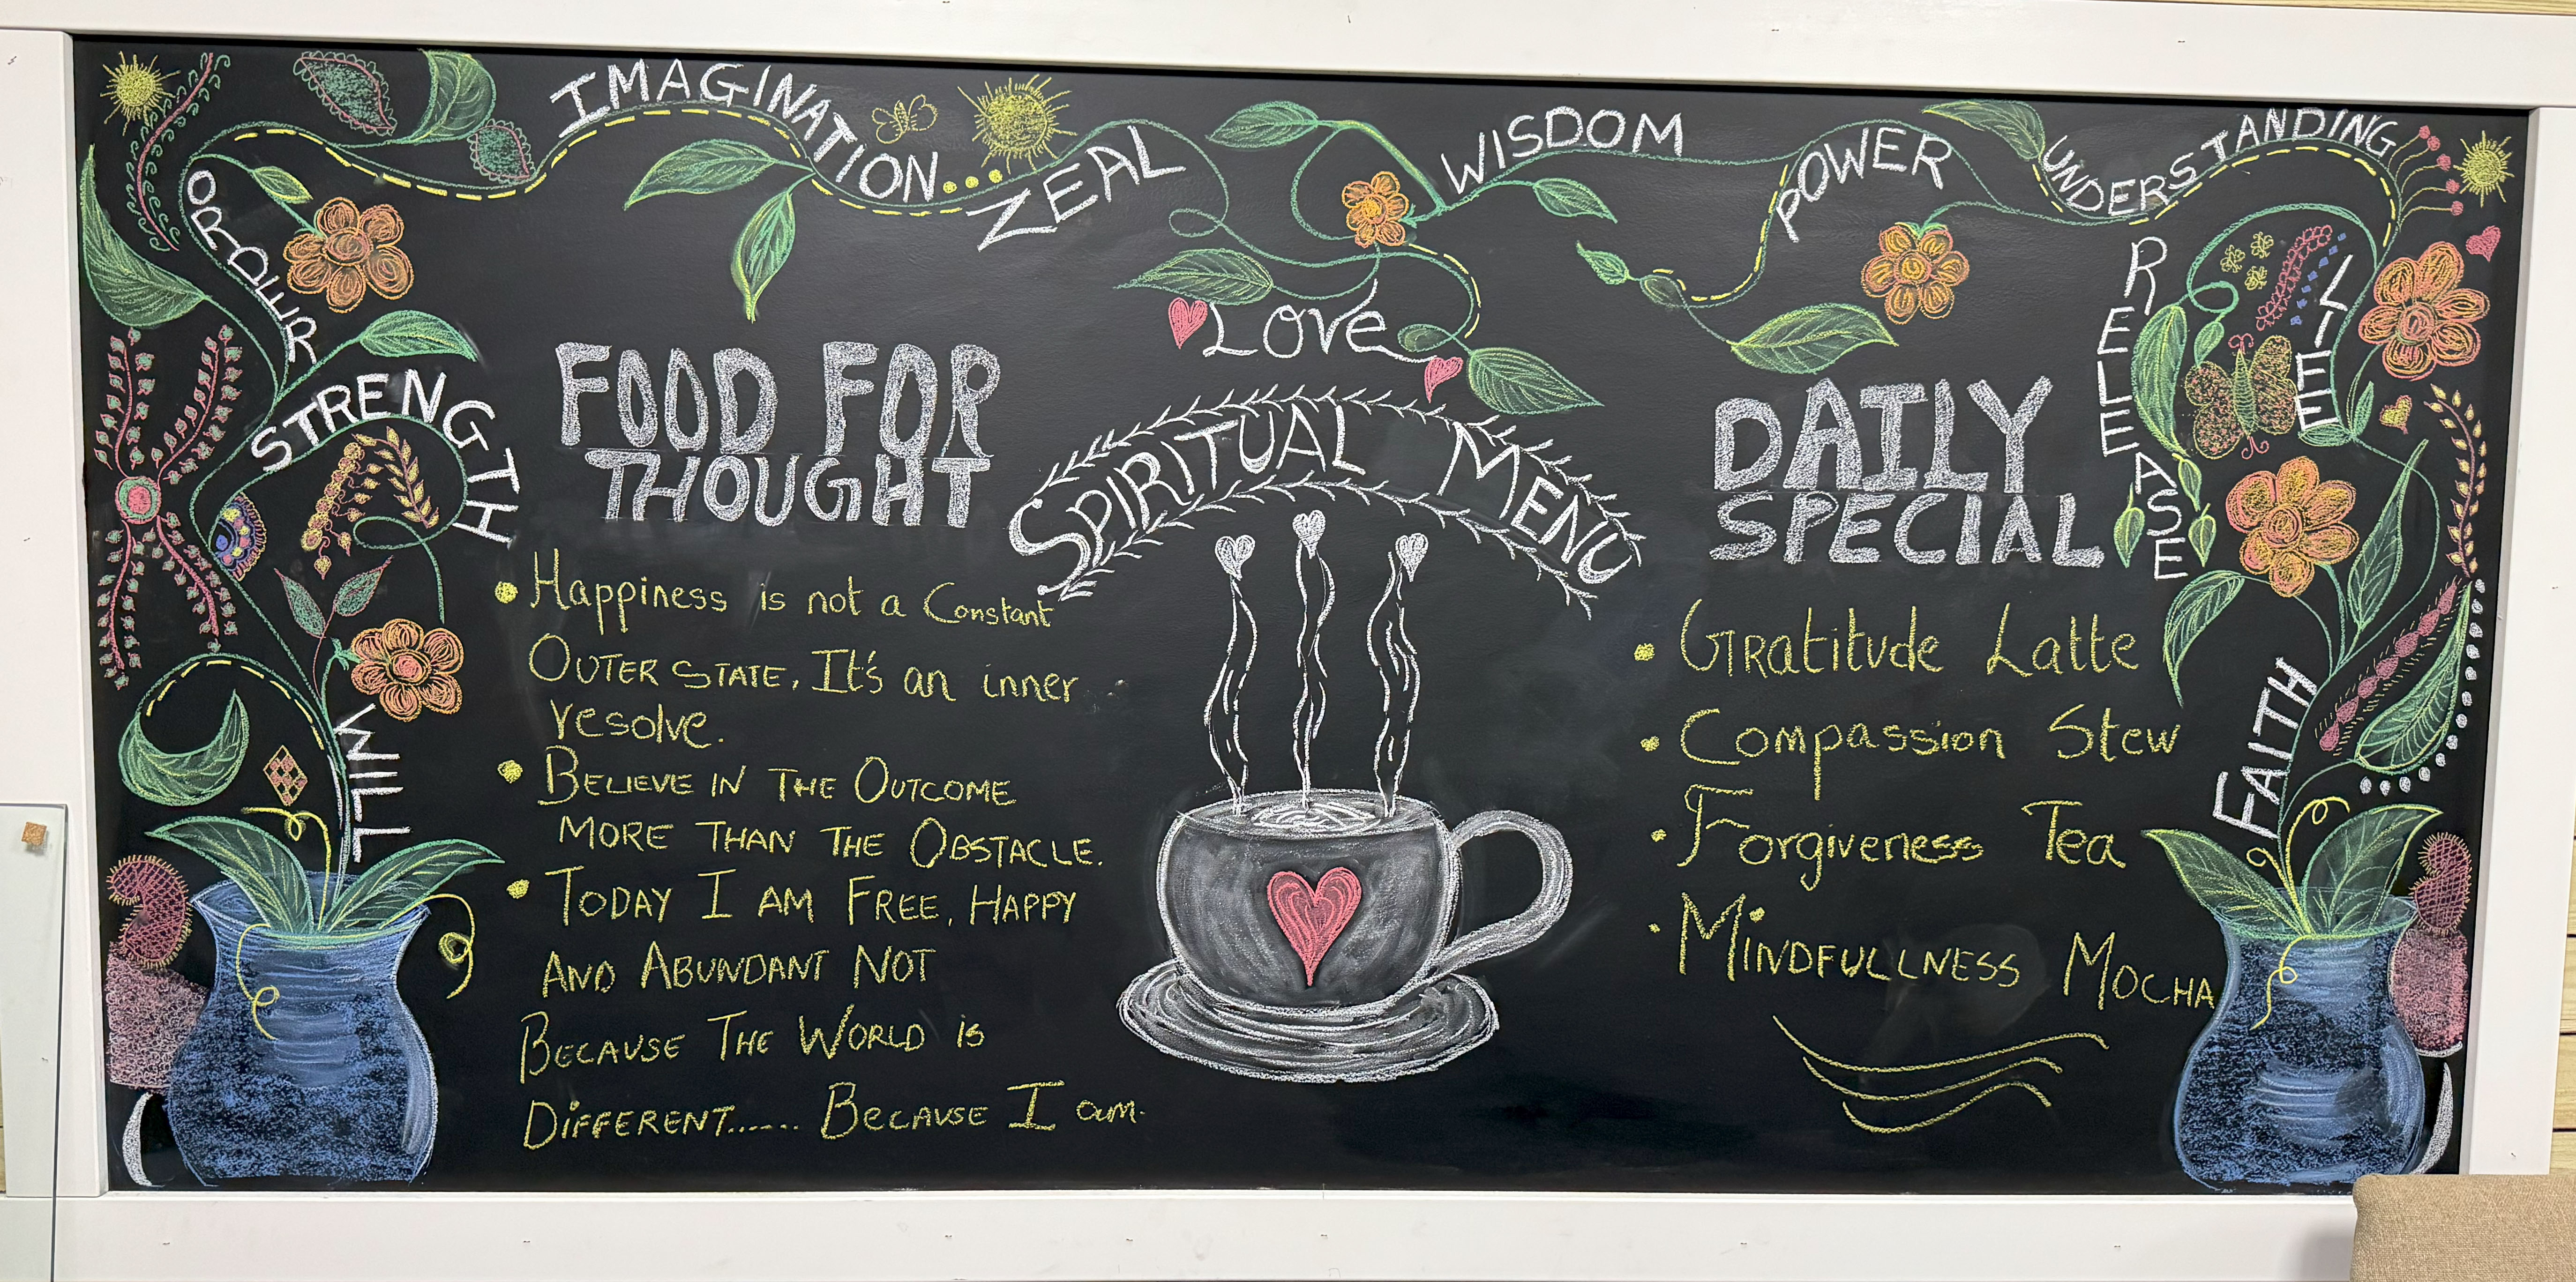 IMAGINATION...
ZEAL
WISDOM
POWER
UNDERSTANDING
ORDER
STRENGTH
WILL
LOVE
RELEASE
LIFE
FAITH
SPIRITUAL MENU
FOOD FOR
THOUGHT
• Happiness is not a Constant
OUTER STATE, It's an inner
resolve.
• BELIEVE IN THE OUTCOME
MORE THAN THE OBSTACLE.
• TODAY I AM FREE, HAPPY
AND ABUNDANT NOT
BECAUSE THE WORLD is
DiFFERENT...... BECAUSE I am.
DAILY
SPECIAL
• Gratitude Latte
• Compassion Stew
• Forgiveness Tea
• MINDFULLNESS MOCHA